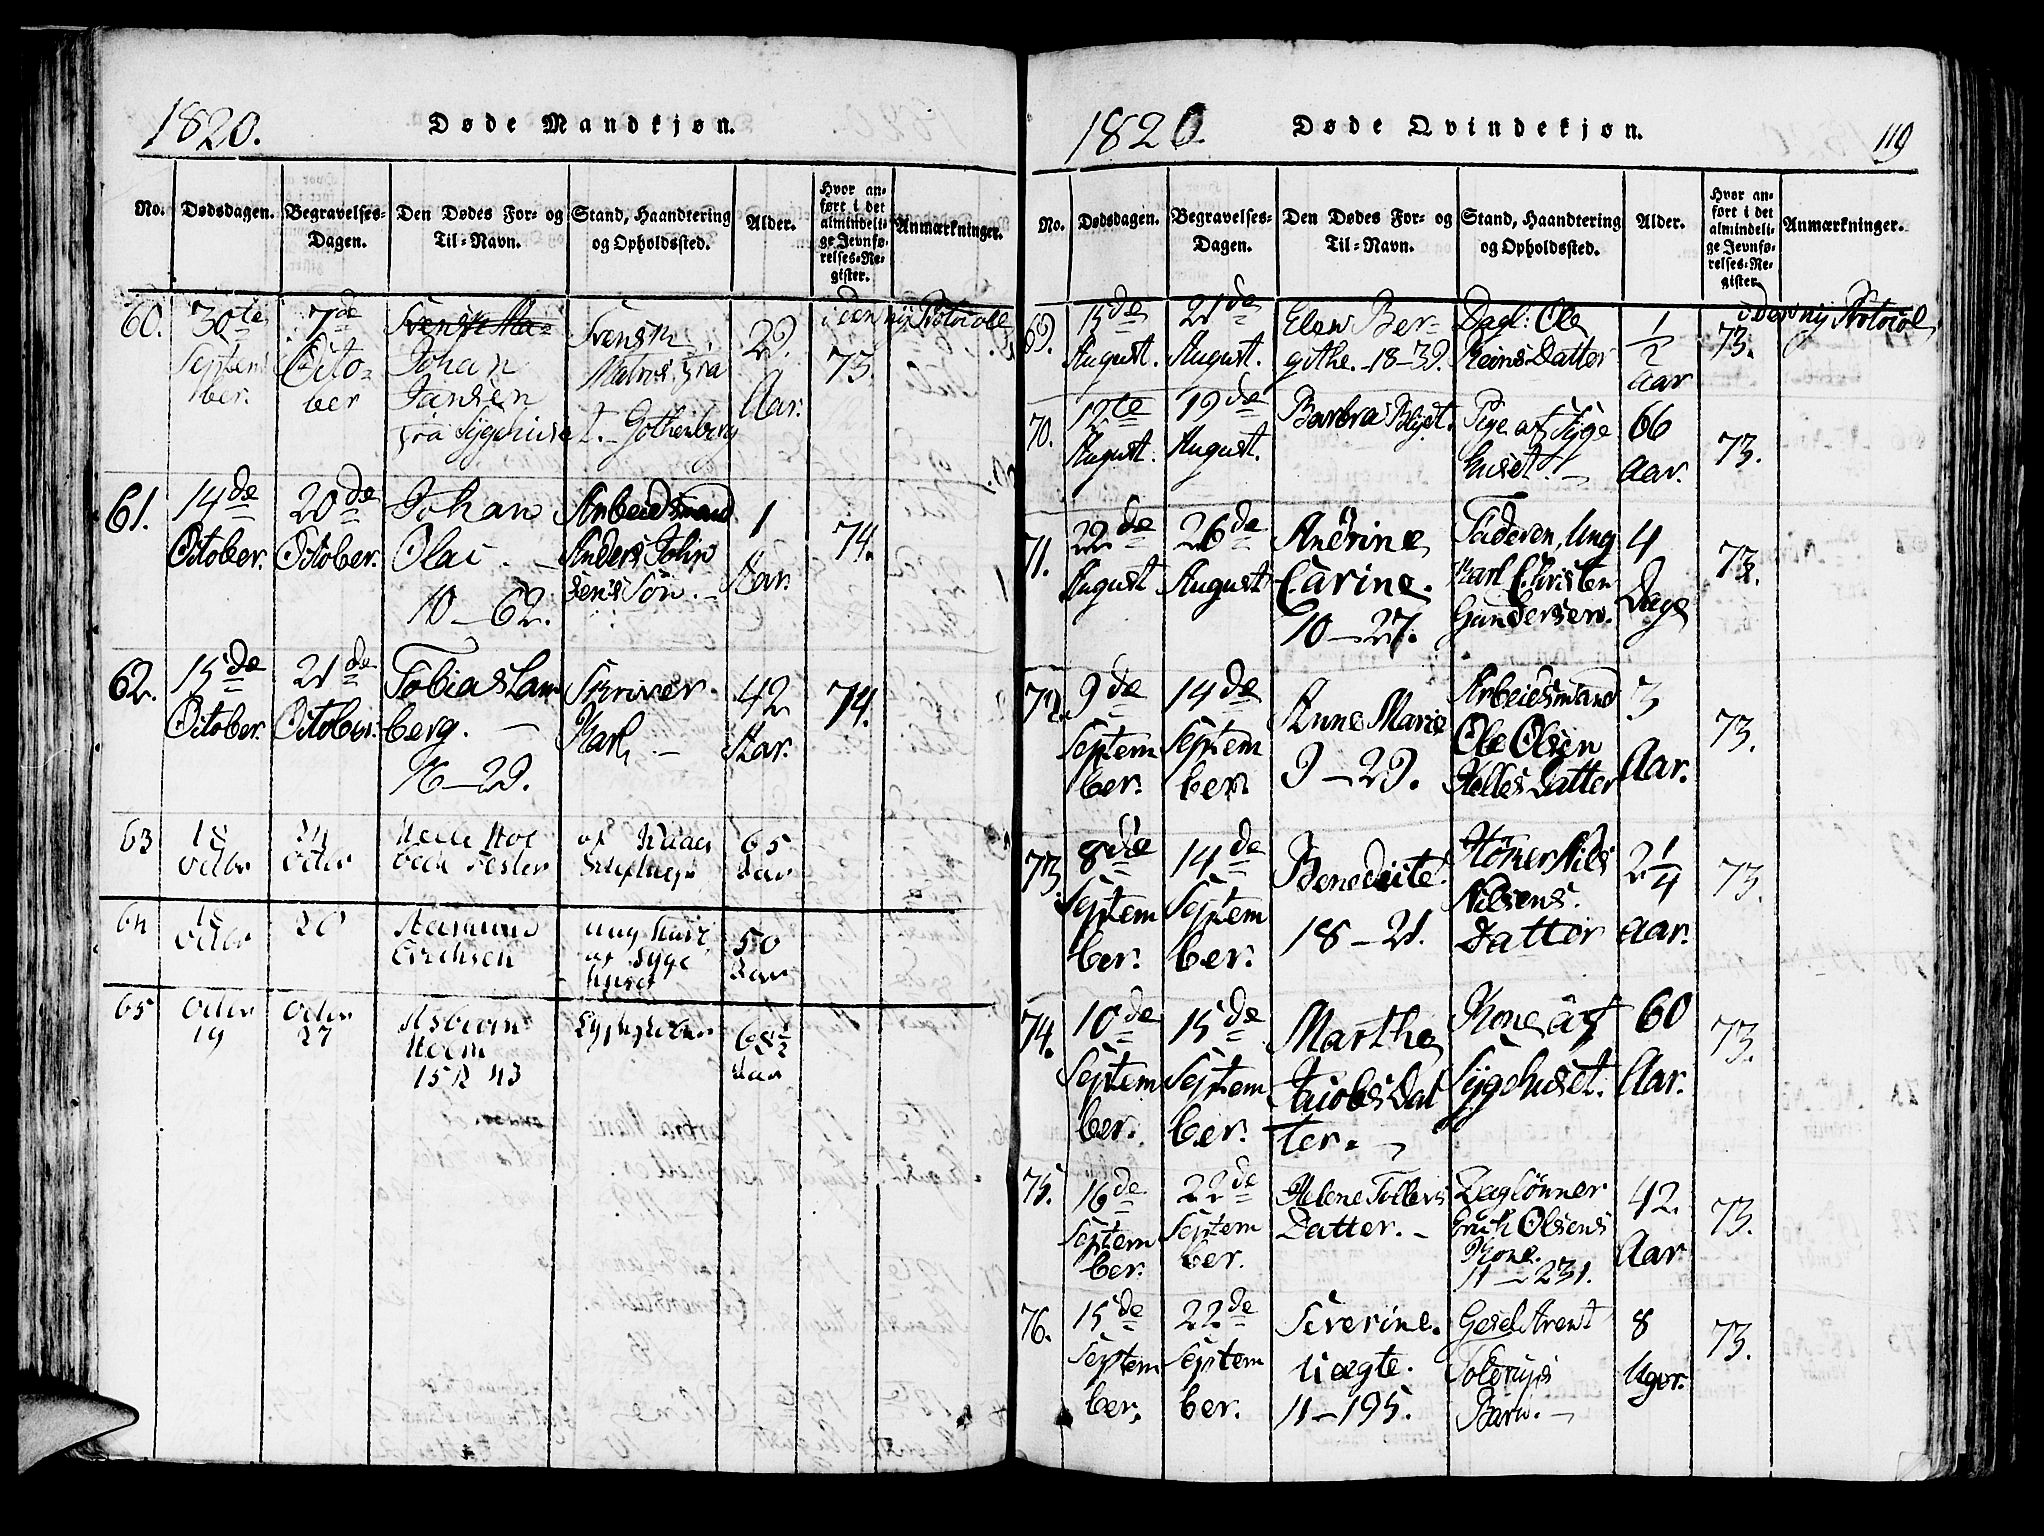 1820.
Døde Mandkjøn.
No.
Dødsdagen.
Begravelses-
Dagen.
Den Dødes For- og
Til-Navn.
Stand, Haandtering
og Opholdssted.
Alder.
Hvor an-
ført i det
almindeli-
ge Jevnfø-
relses-Re-
gister.
Anmærkninger.
60.
30te
Septem
ber.
7de
Octo-
ber
Johan
Jansen
fra Sygehuset.
Svensk
Matros fra
Gothenborg
29.
Aar.
i den ny Protocol
73.
61.
14de
October.
20de
October.
Johan
Olai. -
10-62.
Arbeidsmand
Anders John
sens Søn. -
1
Aar.
74.
62.
15de
October.
21de
October.
Tobias Lam
berg. -
16-29.
Skriver
Karl. -
42
Aar.
74.
63
18
Octbr
24
Octbr
65
Aar
64
18
Octbr
20
Erichsen
ung Karl
af Syge
huset
50
Aar
65
Octbr
19
Octbr
27
Holm
15 R 43
68½
Aar
1820.
Døde Qvindekjøn.
119
No.
Dødsdagen.
Begravelses-
Dagen.
Den Dødes For- og
Til-Navn.
Stand, Haandtering
og Opholdssted.
Alder.
Hvor an-
ført i det
almindeli-
ge Jevnfø-
relses-Re-
gister.
Anmærkninger.
69.
15de
August.
21de
August.
Elen Ber-
githe. 18-39.
Dagl: Ole
Reins Datter
1/2
Aar
i den ny Protocol
73.
70.
12te
August.
19de
August.
Barbra
Pige af Syge
huset. -
66
Aar.
73.
71.
22de
August
26de
August
Andrine
Carine.
10-27.
Faderen, Ung
Karl Christen
Gundersen.
4
Dage
73.
72.
9de
Septem
ber.
14de
Septem
ber.
Anne Marie
9-29.
Arbeidsmand
Ole Olsen
Helles Datter
3
Aar.
73.
73.
8de
Septem
ber.
14de
Septem
ber.
Benedicte.
18-21.
Høker Nils
Nilsens.
Datter
2¼
Aar.
73.
74.
10de
Septem
ber.
15de
Septem
ber.
Marthe
Jacobs Dat
ter. -
Kone af
Sygehuset.
60
Aar.
73.
75.
16de
Septem
ber.
22de
Septem
ber.
Helene Tollevs
Datter. -
Daglønner
Erich Olsens
Kone.
11-231.
42.
Aar
73.
76.
15de
Septem
ber.
22de
Septem
ber.
Severine.
Uægte.
11-195.
Gesel Arent
Tolerups
Barn. -
8
Uger.
73.